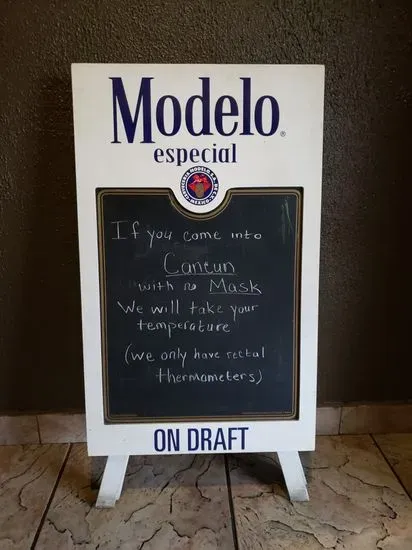 Modelo®
especial
CERVECERIA MODELO, S.A. DE C.V.
MEXICO
If you come into
Cancun
with no Mask
We will take your
temperature
(we only have rectal
thermometers)
ON DRAFT